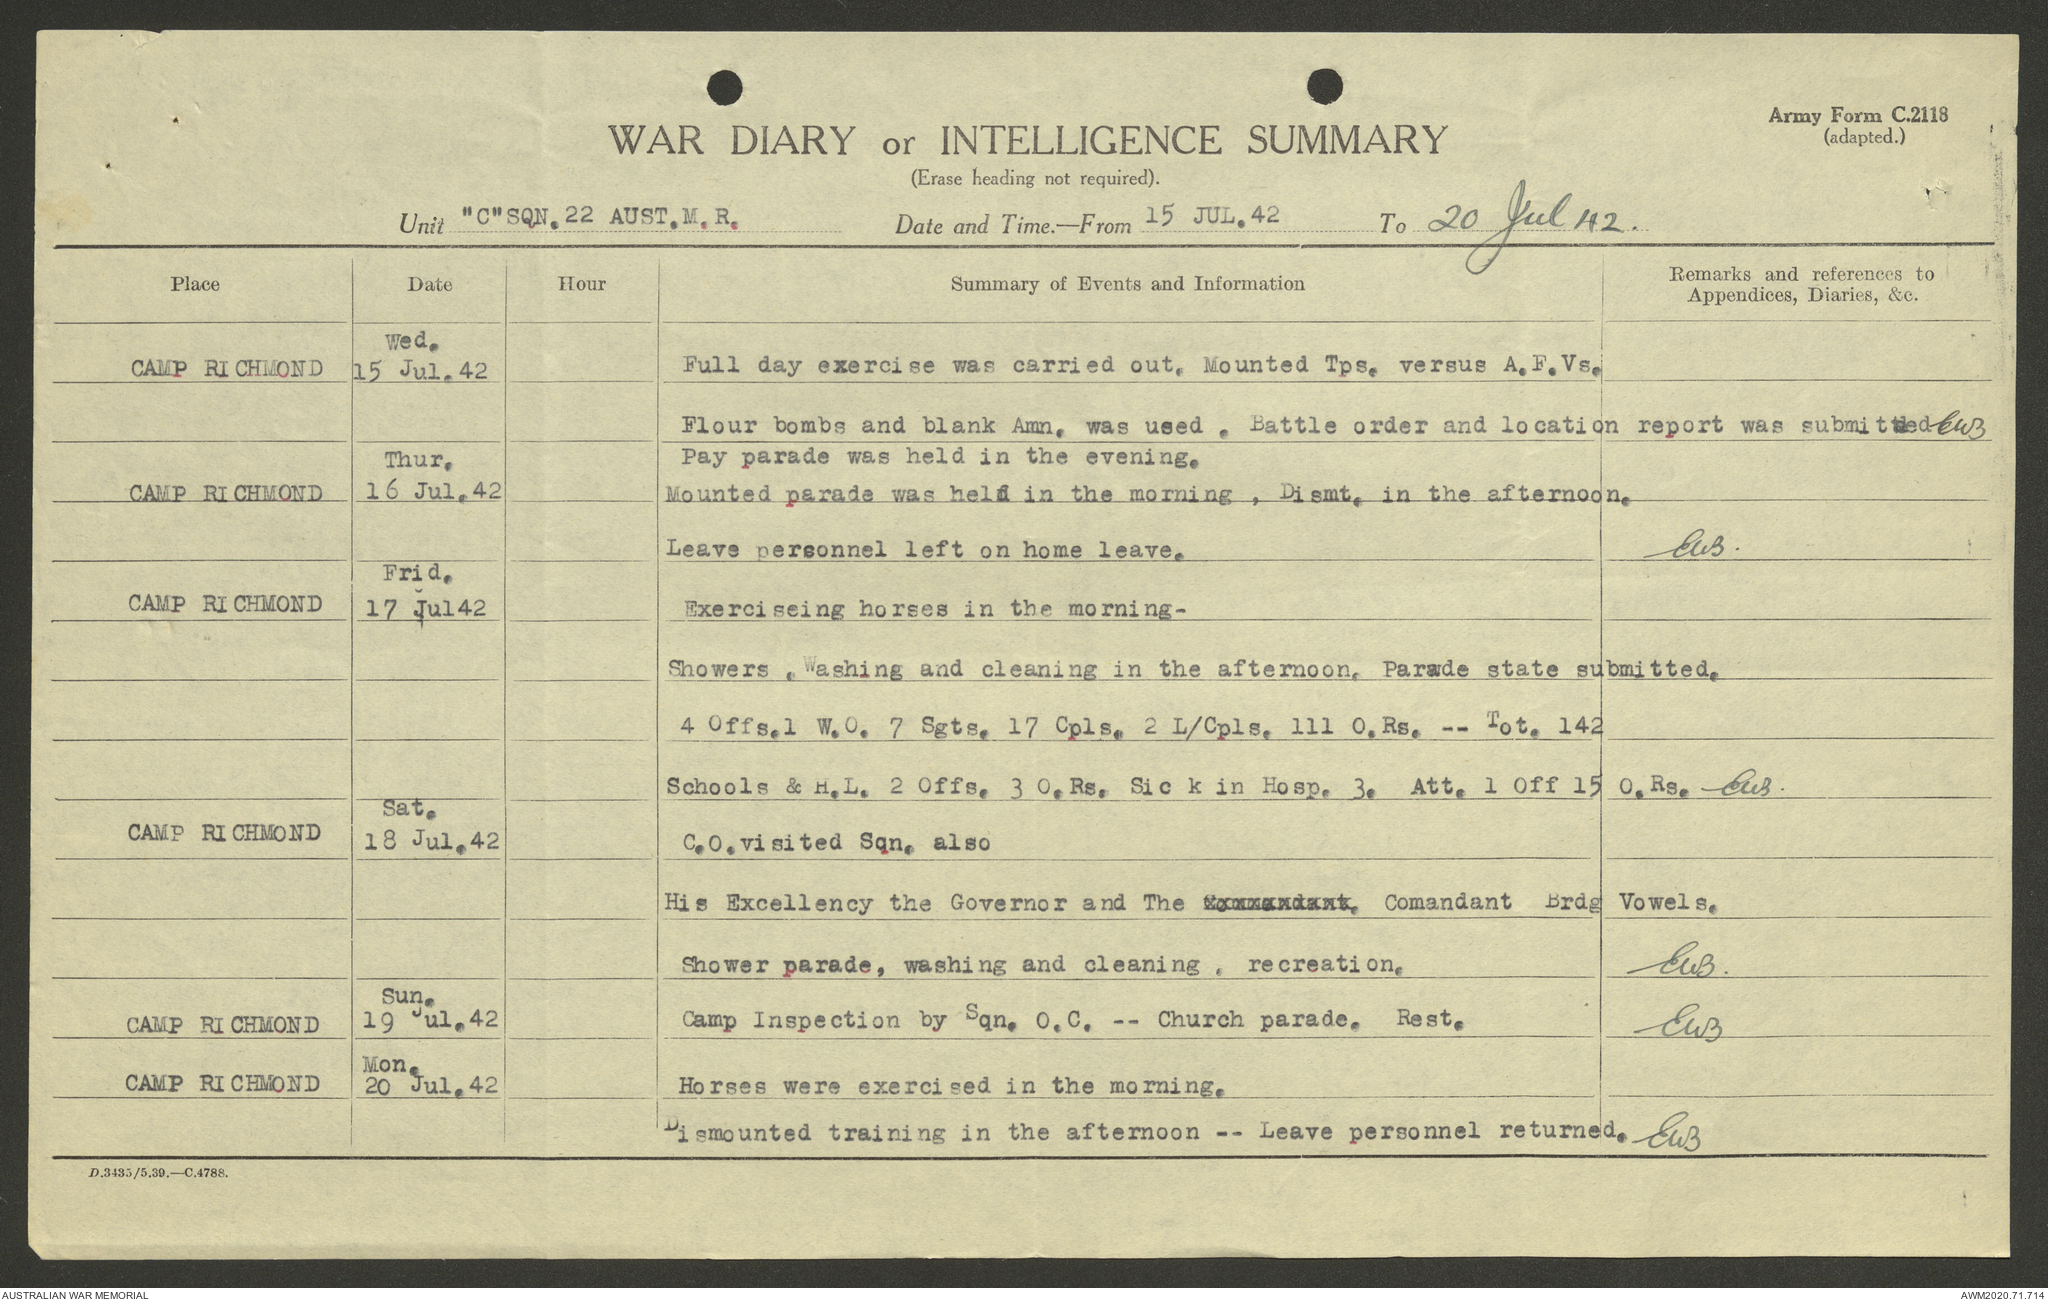 Army Form C.2118
(adapted.)
WAR DIARY or INTELLIGENCE SUMMARY
(Erase heading not required).
Unit "C"SQN.22 AUST.M.R. Date and Time.—From 15 JUL.42 To 20 Jul 42.
Place Date Hour Summary of Events and Information Remarks and references to
Appendices, Diaries, &c.
Wed.
CAMP RICHMOND 15 Jul.42 Full day exercise was carried out. Mounted Tps. versus A.F.Vs.
Flour bombs and blank Amn. was used . Battle order and location report was submitted EWB
Thur. Pay parade was held in the evening.
CAMP RICHMOND 16 Jul.42 Mounted parade was held in the morning , Dismt. in the afternoon.
Leave personnel left on home leave. EWB.
Frid.
CAMP RICHMOND 17 Jul42 Exerciseing horses in the morning-
Showers . Washing and cleaning in the afternoon. Parade state submitted.
4 Offs.1 W.O. 7 Sgts. 17 Cpls. 2 L/Cpls. 111 O.Rs. -- Tot. 142
Schools & H.L. 2 Offs. 3 O.Rs. Sic k in Hosp. 3. Att. 1 Off 15 O.Rs. EWB.
Sat.
CAMP RICHMOND 18 Jul.42 C.O.visited Sqn. also
His Excellency the Governor and The Commandant. Comandant Brdg Vowels.
Shower parade, washing and cleaning , recreation. EWB.
Sun.
CAMP RICHMOND 19 Jul.42 Camp Inspection by Sqn. O.C. -- Church parade. Rest. EWB
Mon.
CAMP RICHMOND 20 Jul.42 Horses were exercised in the morning.
Dismounted training in the afternoon -- Leave personnel returned. EWB
D.3435/5.39.—C.4788.
AUSTRALIAN WAR MEMORIAL AWM2020.71.714